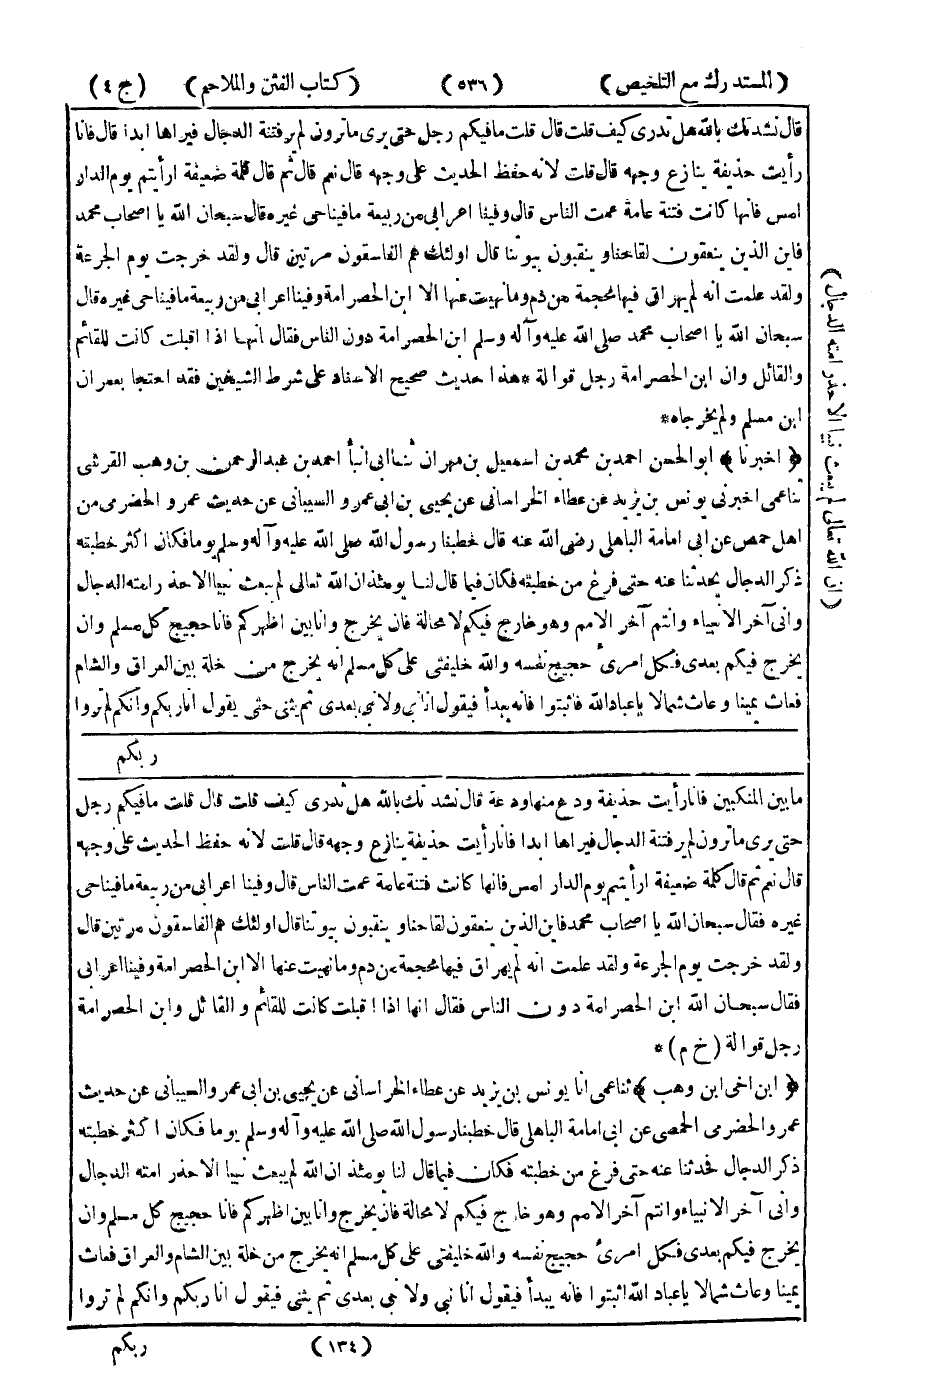 ﴿ المستدرك مع التلخيص ﴾ ﴿ ٥٣٦ ﴾ ﴿ كتاب الفتن والملاحم ﴾ ﴿ ج ٤ ﴾
قال نشدتك بالله هل تدرى كيف قلت قال قلت مافيكم رجل حتى يرى ماترون لم ير فتنة الدجال فيراها ابدا قال فانا
رأيت حذيفة ينازع وجهه قال قلت لانه حفظ الحديث على وجهه قال نعم قال ثم قال كلمة ضعيفة ارأيتم يوم الدار
امس فانها كانت فتنة عامة عمت الناس قال وفينا اعرابى من ربيعة مافيناحى غيره قال سبحان الله يا اصحاب محمد
فاين الذين ينعقون لقاحناو ينقبون بيوتنا قال اولئك هم الفاسقون مرتين قال ولقد خرجت يوم الجرعة
ولقد علمت انه لم يهراق فيها محجمة من دم ومانهيت عنها الا ابن الحصرامة وفينا اعرابى من ربيعة مافيناحى غيره قال
سبحان الله يا اصحاب محمد صلى الله عليه وآله وسلم ابن الحصرامة دون الناس فقال انها اذا اقبلت كانت للقائم
والقائل وان ابن الحصرامة رجل قوالة * هذا حديث صحيح الاسناد على شرط الشيخين فقد احتجا بعمران
ابن مسلم ولم يخرجاه *
﴿ اخبرنا ﴾ ابو الحسن احمد بن محمد بن اسمعيل بن مهران ثنا ابى انبأ احمد بن عبد الرحمن بن وهب القرشى
ثنا عمى اخبرنى يونس بن يزيد عن عطاء الخراسانى عن يحيى بن ابى عمرو السيبانى عن حديث عمرو الحضرمى من
اهل حمص عن ابى امامة الباهلى رضى الله عنه قال خطبنا رسول الله صلى الله عليه وآله وسلم يوما فكان اكثر خطبته
ذكر الدجال يحدثنا عنه حتى فرغ من خطبته فكان فيما قال لنا يومئذ ان الله تعالى لم يبعث نبيا الا حذر امته الدجال
وانى آخر الانبياء وانتم آخر الامم وهو خارج فيكم لا محالة فان يخرج وانا بين اظهركم فانا حجيج كل مسلم وان
يخرج فيكم بعدى فكل امرئ حجيج نفسه والله خليفتى على كل مسلم انه يخرج من خلة بين العراق والشام
فعاث يمينا وعاث شمالا يا عباد الله فاثبتوا فانه يبدأ فيقول انا نبى ولا نبى بعدى ثم يثنى حتى يقول انا ربكم وانكم لم تروا
ربكم
﴿ ان الله تعالى لم يبعث نبيا الا حذر امته الدجال ﴾
مابين المنكبين فانا رأيت حذيفة ودع منها ودعة قال نشدتك بالله هل تدرى كيف قلت قال قلت مافيكم رجل
حتى يرى ماترون لم ير فتنة الدجال فيراها ابدا فانا رأيت حذيفة ينازع وجهه قال قلت لانه حفظ الحديث على وجهه
قال نعم ثم قال كلمة ضعيفة ارأيتم يوم الدار امس فانها كانت فتنة عامة عمت الناس قال وفينا اعرابى من ربيعة مافيناحى
غيره فقال سبحان الله يا اصحاب محمد فاين الذين ينعقون لقاحناو ينقبون بيوتنا قال اولئك هم الفاسقون مرتين قال
ولقد خرجت يوم الجرعة ولقد علمت انه لم يهراق فيها محجمة من دم ومانهيت عنها الا ابن الحصرامة وفينا اعرابى
فقال سبحان الله ابن الحصرامة دون الناس فقال انها اذا اقبلت كانت للقائم و القائل وابن الحصرامة
رجل قوالة ( خ م ) *
﴿ ابن اخى ابن وهب ﴾ ثنا عمى انا يونس بن يزيد عن عطاء الخراسانى عن يحيى بن ابى عمرو السيبانى عن حديث
عمرو الحضرمى الحمصى عن ابى امامة الباهلى قال خطبنا رسول الله صلى الله عليه وآله وسلم يوما فكان اكثر خطبته
ذكر الدجال فحدثنا عنه حتى فرغ من خطبته فكان فيما قال لنا يومئذ ان الله لم يبعث نبيا الا حذر امته الدجال
وانى آخر الانبياء وانتم آخر الامم وهو خارج فيكم لا محالة فان يخرج وانا بين اظهركم فانا حجيج كل مسلم وان
يخرج فيكم بعدى فكل امرئ حجيج نفسه والله خليفتى على كل مسلم انه يخرج من خلة بين الشام والعراق فعاث
يمينا وعاث شمالا يا عباد الله اثبتوا فانه يبدأ فيقول انا نبى ولا نبى بعدى ثم يثنى فيقول انا ربكم وانكم لم تروا
﴿ ١٣٤ ﴾ ربكم